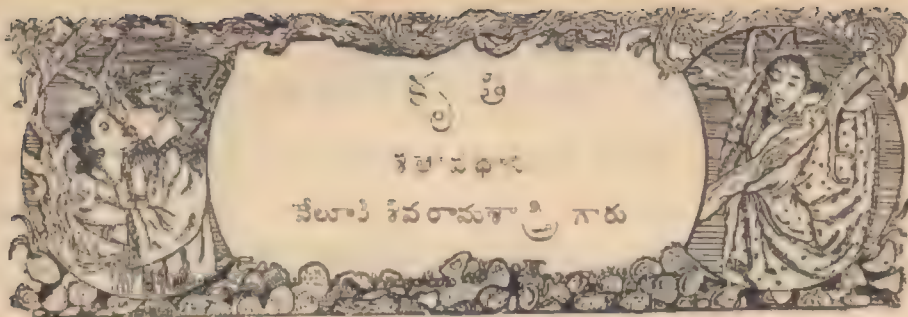 కృ తి
శతావధాని
వేలూరి శివరామశాస్త్రి గారు